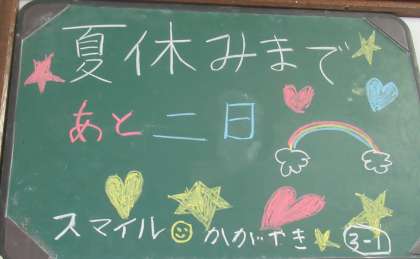 夏休みまで
あと二日
スマイル かがやき 3-1